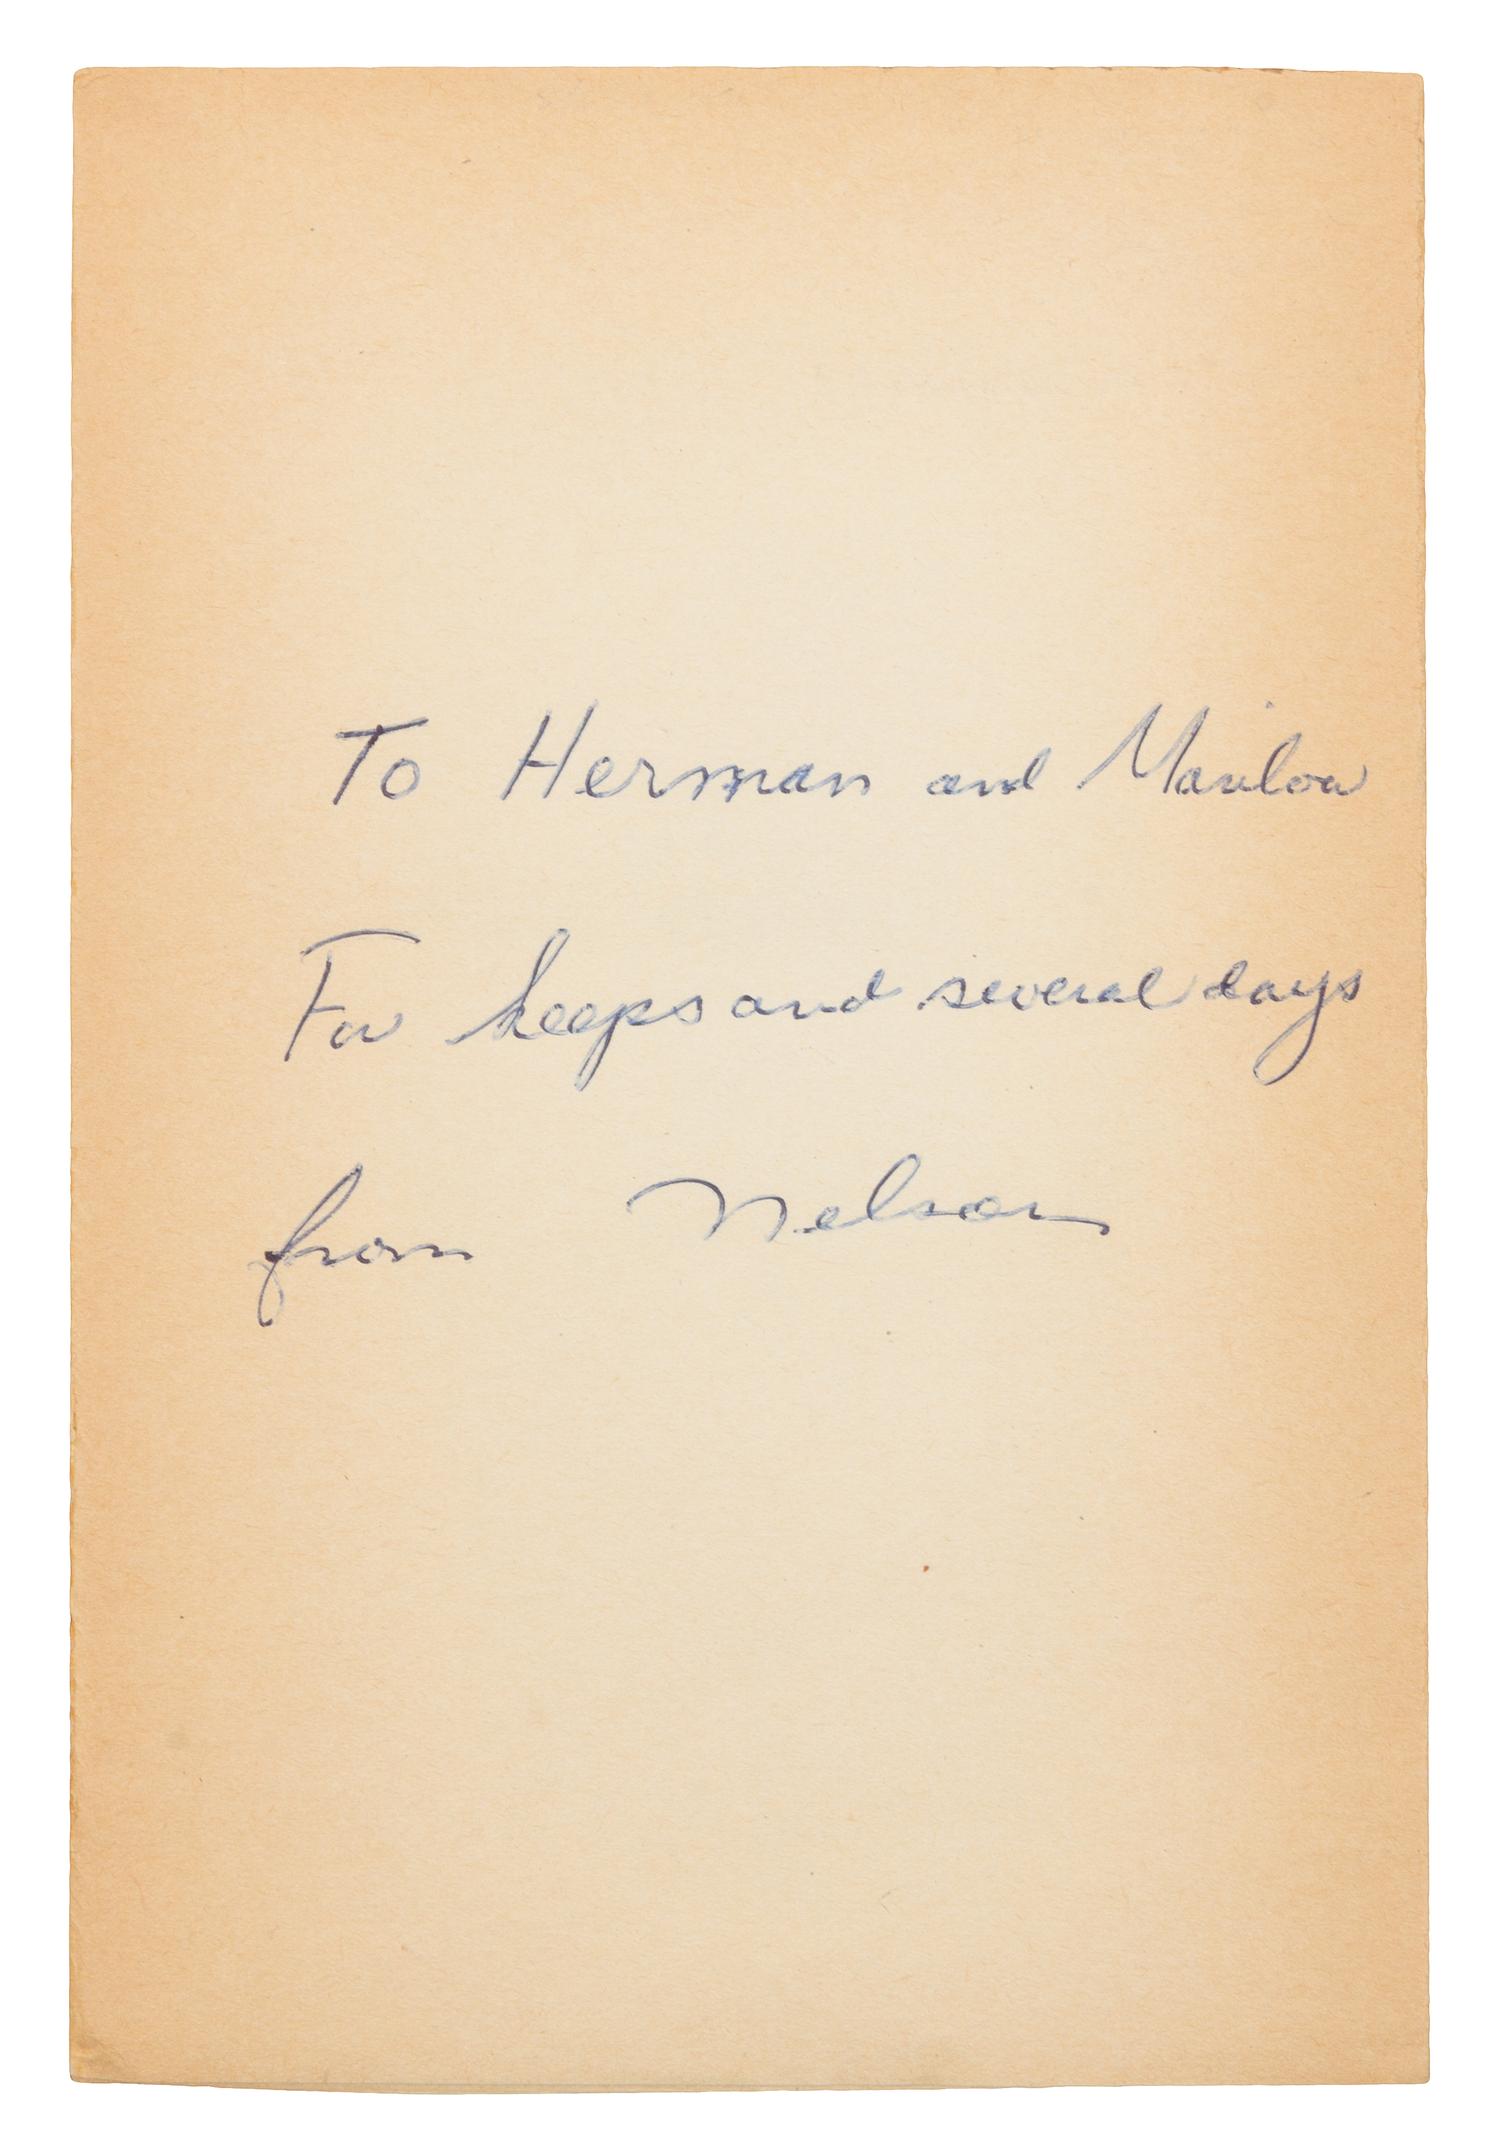 To Herman and Marilou
For keeps and several days
from Nelson